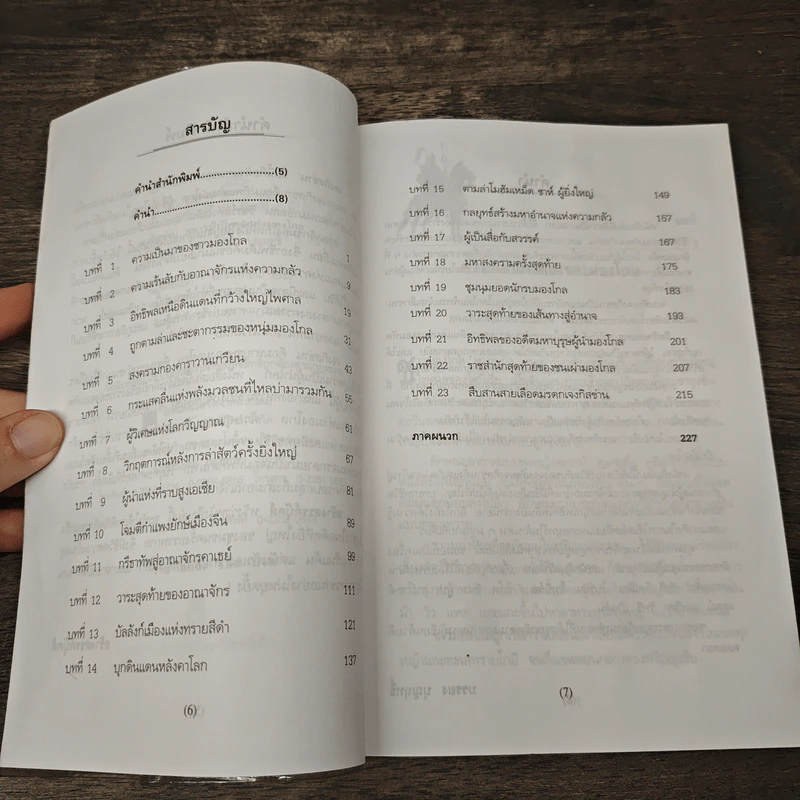 สารบัญ
คำนำสำนักพิมพ์.......................(5)
คำนำ....................................(8)
บทที่ 1 ความเป็นมาของชาวมองโกล 1
บทที่ 2 ความเร้นลับกับอาณาจักรแห่งความกลัว 9
บทที่ 3 อิทธิพลเหนือดินแดนที่กว้างใหญ่ไพศาล 19
บทที่ 4 ถูกตามล่าและชะตากรรมของหนุ่มมองโกล 31
บทที่ 5 สงครามกองคาราวานเกวียน 43
บทที่ 6 กระแสคลื่นแห่งพลังมวลชนที่ไหลบ่ามารวมกัน 55
บทที่ 7 ผู้วิเศษแห่งโลกวิญญาณ 61
บทที่ 8 วิกฤตการณ์หลังการล่าสัตว์ครั้งยิ่งใหญ่ 67
บทที่ 9 ผู้นำแห่งที่ราบสูงเอเชีย 81
บทที่ 10 โจมตีกำแพงยักษ์เมืองจีน 89
บทที่ 11 กรีธาทัพสู่อาณาจักรคาเธย์ 99
บทที่ 12 วาระสุดท้ายของอาณาจักร 111
บทที่ 13 บัลลังก์เมืองแห่งทรายสีดำ 121
บทที่ 14 บุกดินแดนหลังคาโลก 137
(6)
บทที่ 15 ตามล่าโมฮัมเหม็ด ชาห์ ผู้ยิ่งใหญ่ 149
บทที่ 16 กลยุทธ์สร้างมหาอำนาจแห่งความกลัว 157
บทที่ 17 ผู้เป็นสื่อกับสวรรค์ 167
บทที่ 18 มหาสงครามครั้งสุดท้าย 175
บทที่ 19 ชุมนุมยอดนักรบมองโกล 183
บทที่ 20 วาระสุดท้ายของเส้นทางสู่อำนาจ 193
บทที่ 21 อิทธิพลของอดีตมหาบุรุษผู้นำมองโกล 201
บทที่ 22 ราชสำนักสุดท้ายของชนเผ่ามองโกล 207
บทที่ 23 สืบสานสายเลือดมรดกเจงกิสข่าน 215
ภาคผนวก 227
(7)